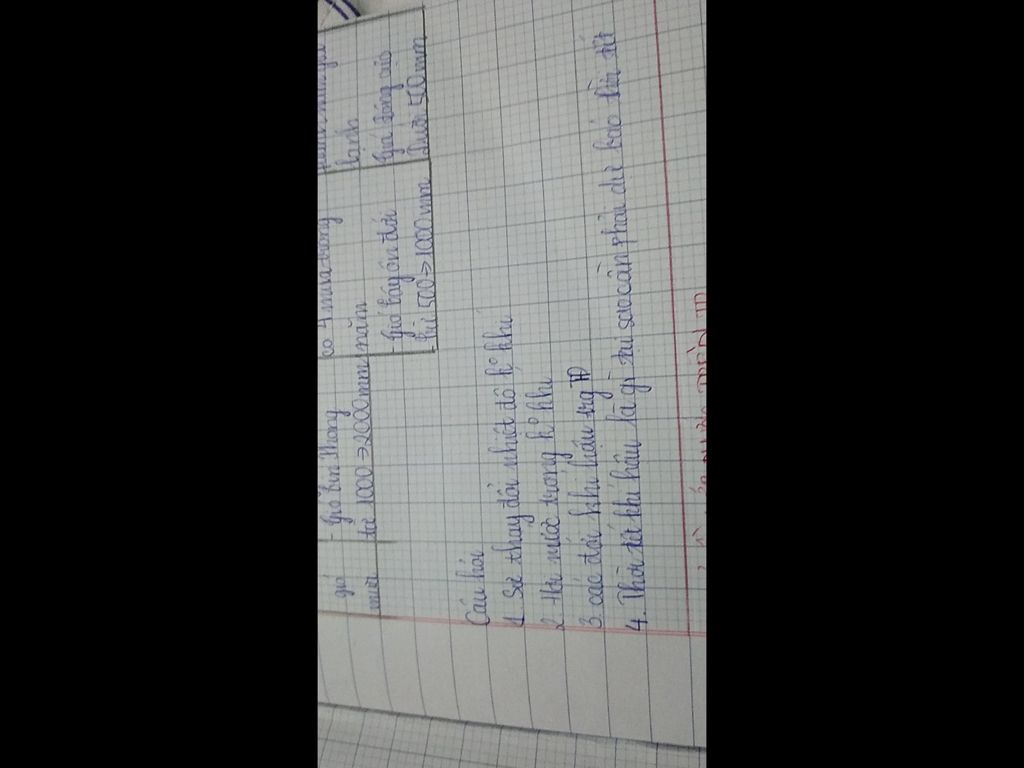 có 4 mùa trong
lạnh
gió
- gió tín phong
năm
Gió Đông cực
mưa
từ 1000 => 2000mm
- gió tây ôn đới
Dưới 500mm
- từ 500 => 1000mm
Câu hỏi
1. Sự thay đổi nhiệt độ k° khí
2. Hơi nước trong k° khí
3. các đới khí hậu trg TĐ
4. Thời tiết khí hậu là gì tại sao cần phải dự báo thời tiết